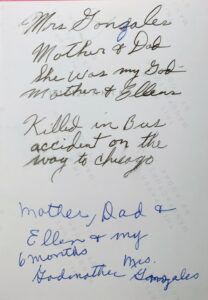 Mrs Gonzales
Mother & Dad
She Was my God-
Mother & Ellens
Killed in Bus
accident on the
way to chicago
Mother, Dad &
Ellen & my
6 months
Godmother Mrs. Gonzales